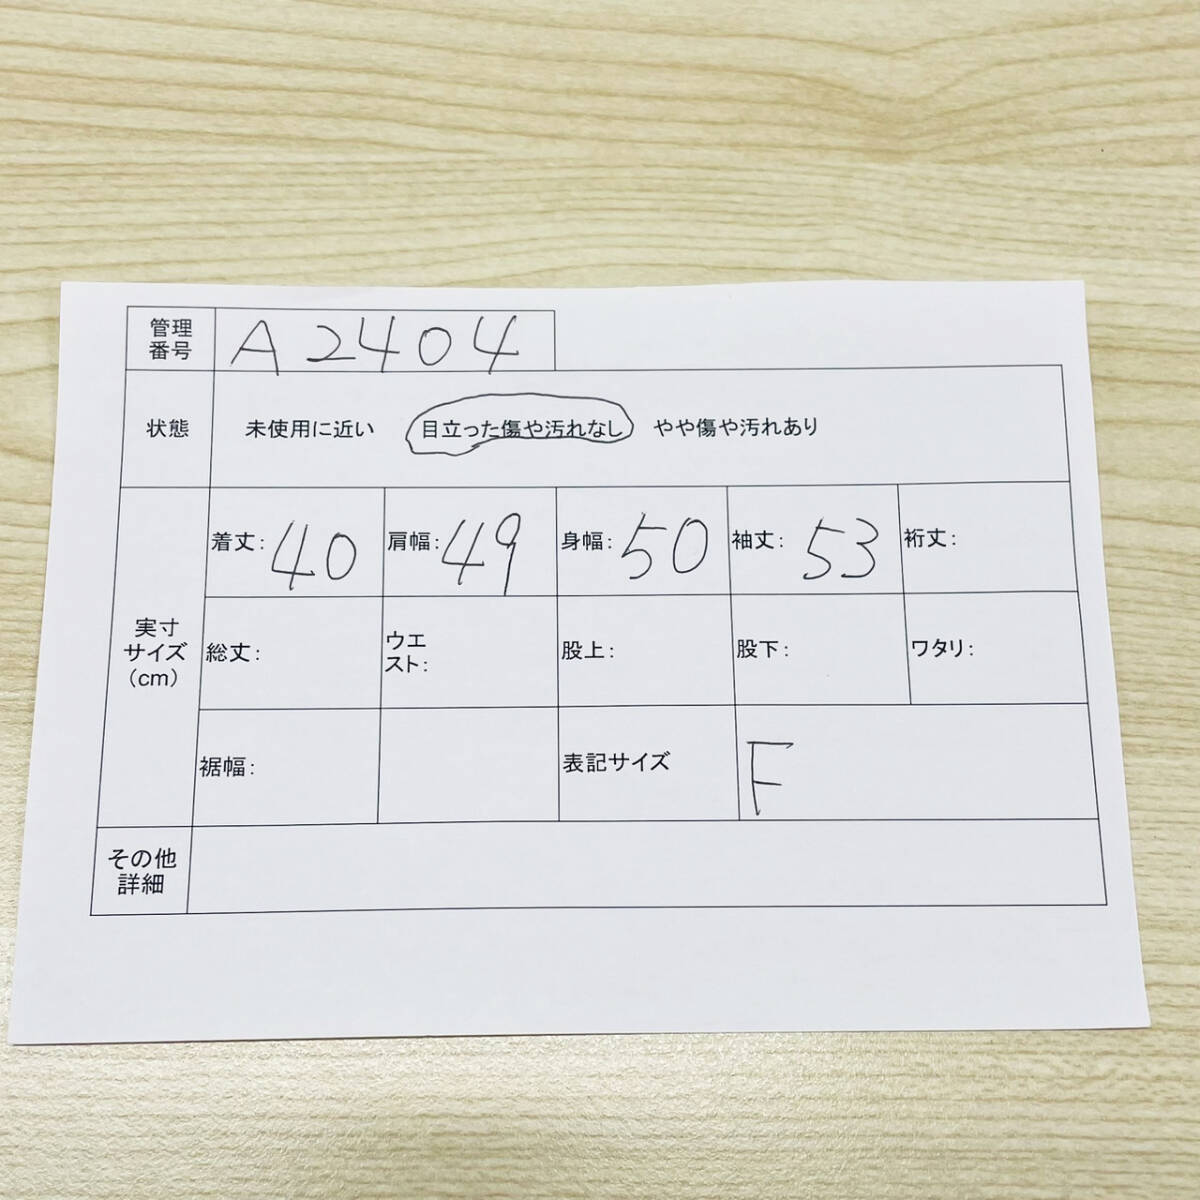 管理
番号 A2404
状態 未使用に近い 目立った傷や汚れなし やや傷や汚れあり
実寸
サイズ
(cm)
着丈: 40 肩幅: 49 身幅: 50 袖丈: 53 裄丈:
総丈: ウエ
スト: 股上: 股下: ワタリ:
裾幅: 表記サイズ F
その他
詳細